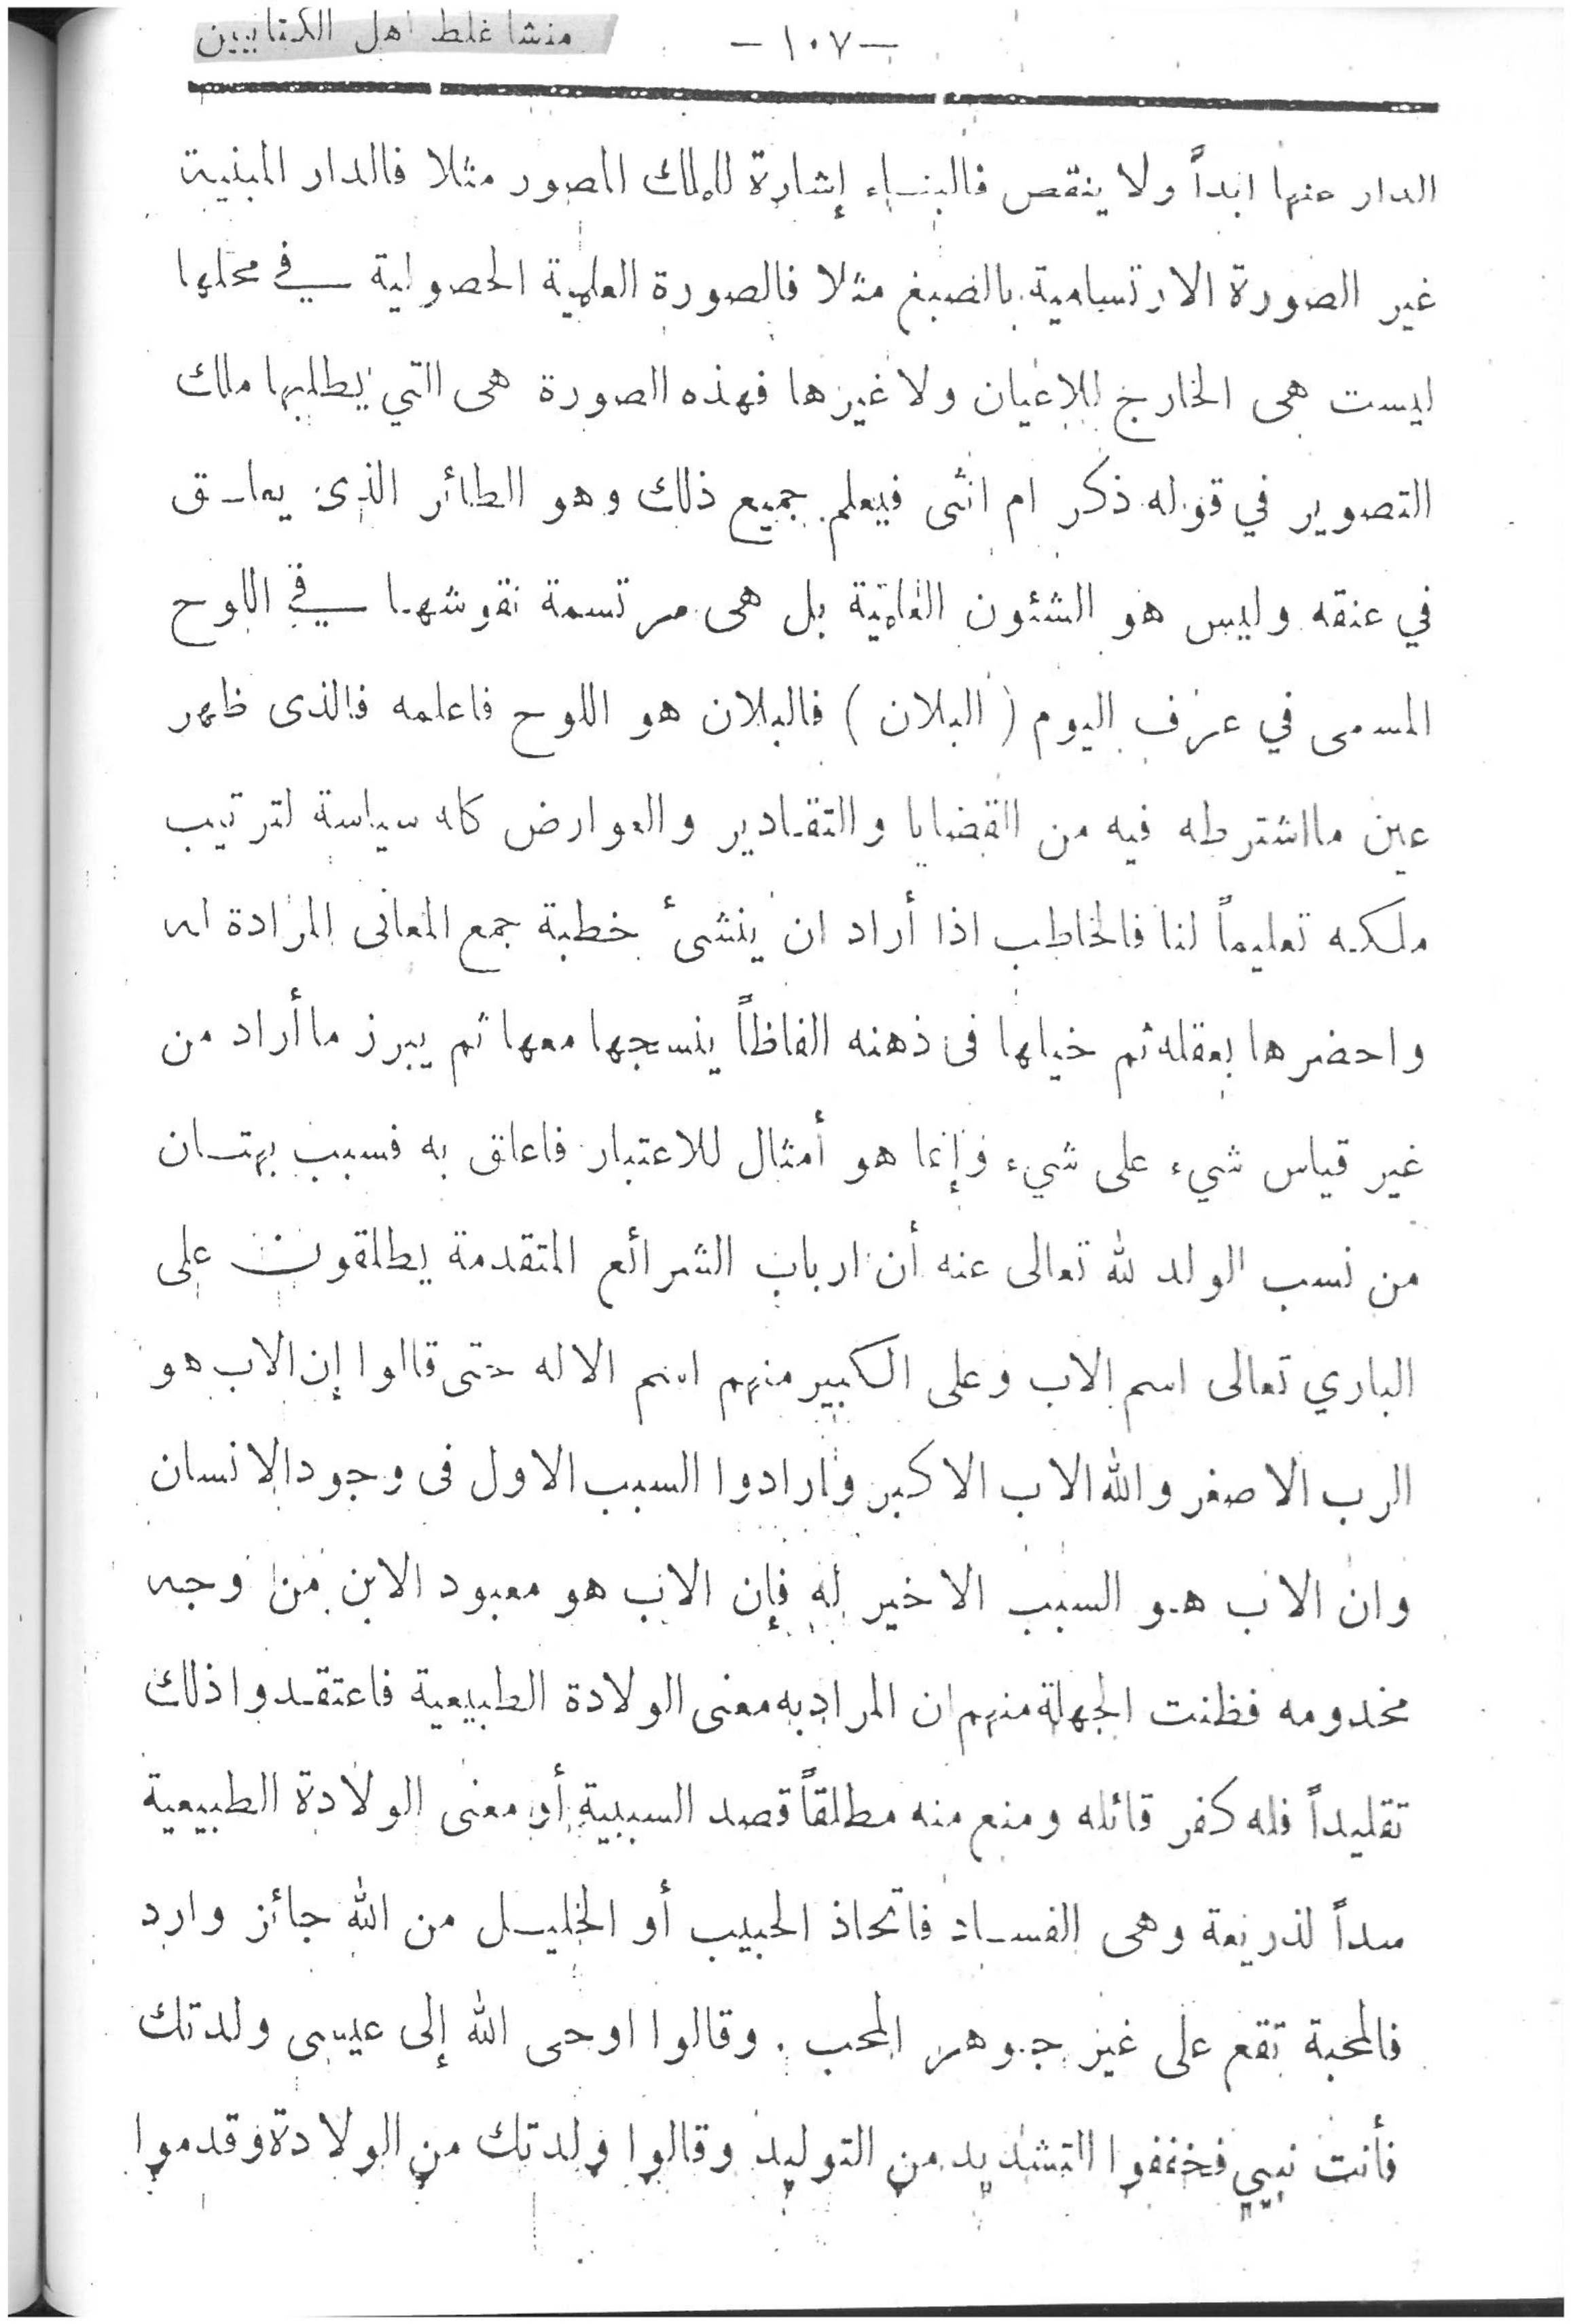 منشا غلط اهل الكتابيين
— ١٠٧ —
الدار عنها ابداً ولا ينقص فالبناء إشارة للملك المصور مثلا فالدار المبنية
غير الصورة الارتسامية بالصبغ مثلا فالصورة العلمية الحصولية في محلها
ليست هى الخارج للاعيان ولا غيرها فهذه الصورة هى التي يطلبها ملك
التصوير في قوله ذكر ام انثى فيعلم جميع ذلك وهو الطائر الذى يعلق
في عنقه وليس هو الشئون العلمية بل هى مرتسمة نقوشها في اللوح
المسمى في عرف اليوم (البلان) فالبلان هو اللوح فاعلمه فالذى ظهر
عين مااشترطه فيه من القضايا والتقادير والعوارض كله سياسة لترتيب
ملكه تعليماً لنا فالخاطب اذا أراد ان ينشئ خطبة جمع المعانى المرادة له
واحضرها بعقله ثم خيلها فى ذهنه الفاظاً ينسجها معها ثم يبرز ماأراد من
غير قياس شيء على شيء وإنما هو أمثال للاعتبار فاعلق به فسبب بهتان
من نسب الولد لله تعالى عنه أن ارباب الشرائع المتقدمة يطلقون على
الباري تعالى اسم الاب وعلى الكبير منهم اسم الاله حتى قالوا إن الاب هو
الرب الاصغر والله الاب الاكبر وارادوا السبب الاول فى وجود الانسان
وان الاب هو السبب الاخير له فإن الاب هو معبود الابن من وجه
مخدومه فظنت الجهلة منهم ان المراد به معنى الولادة الطبيعية فاعتقدوا ذلك
تقليداً فله كفر قائله ومنع منه مطلقاً قصد السببية أو معنى الولادة الطبيعية
سداً لذريعة وهى الفساد فاتخاذ الحبيب أو الخليل من الله جائز وارد
فالمحبة تقع على غير جوهر المحب . وقالوا اوحى الله إلى عيسى ولدتك
فأنت نبيي فخففوا التشديد من التوليد وقالوا ولدتك من الولادة وقدموا